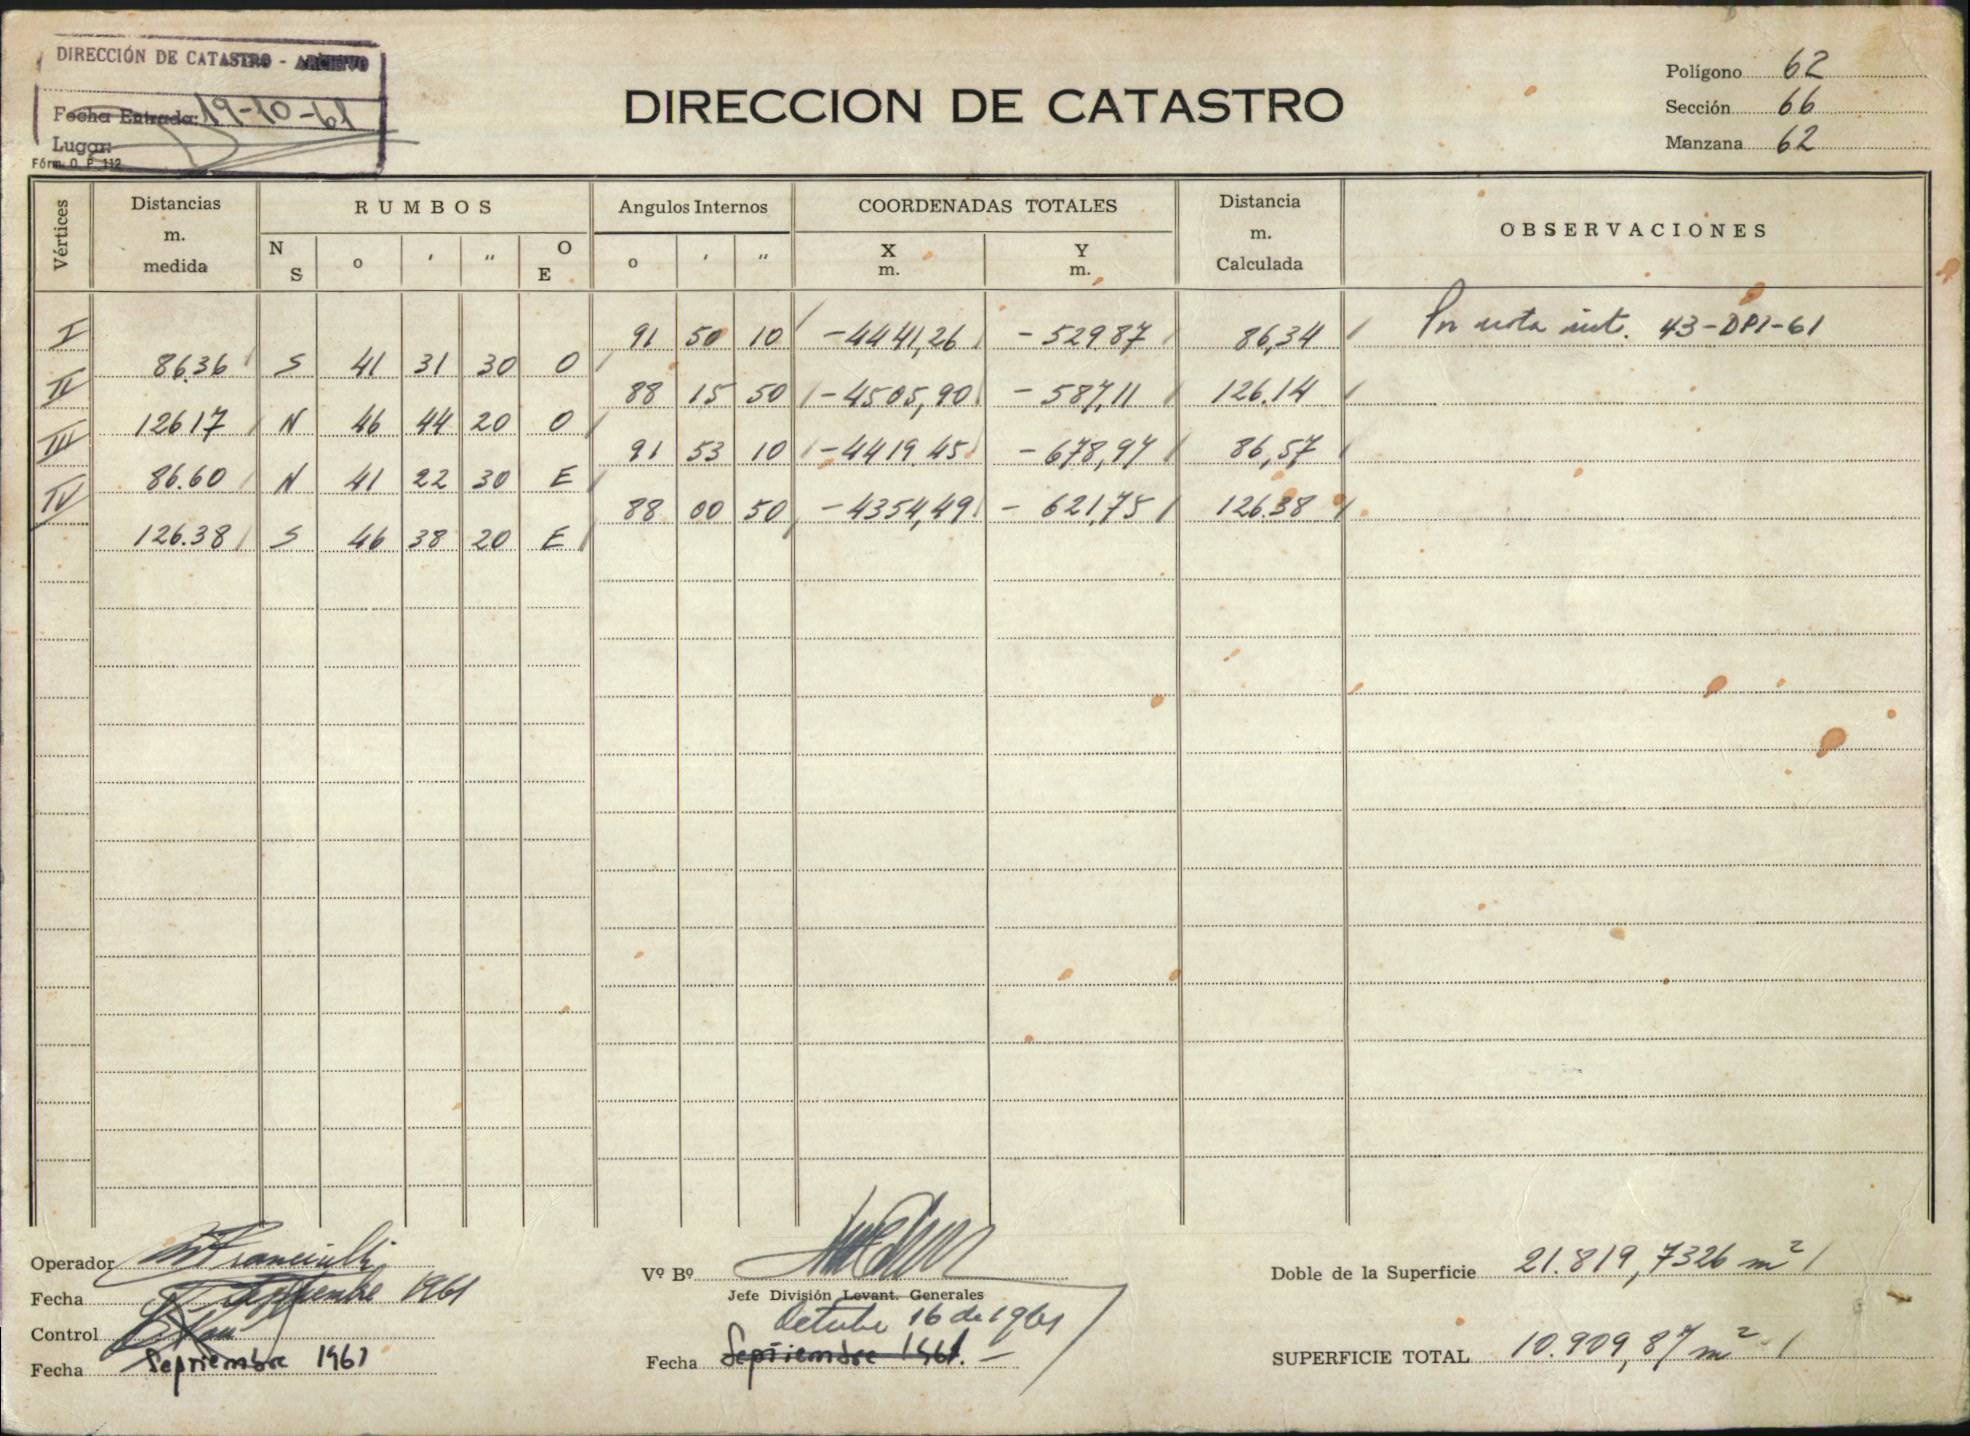 DIRECCIÓN DE CATASTRO - ARCHIVO
Fecha Entrada: 19-10-61
Lugar:
Fórm. O. P. 112
DIRECCION DE CATASTRO
Polígono 62
Sección 66
Manzana 62
Vértices Distancias m. medida RUMBOS Angulos Internos COORDENADAS TOTALES Distancia m. Calculada OBSERVACIONES
N S o ' " O E o ' " X m. Y m.
I 91 50 10 -4441,26 -529,87 86,34 Por nota int. 43-DPI-61
86.36 S 41 31 30 O
II 88 15 50 -4505,90 -587,11 126.14
126.17 N 46 44 20 O
III 91 53 10 -4419,45 -678,97 86,57
86.60 N 41 22 30 E
IV 88 00 50 -4354,49 -621,75 126.38
126.38 S 46 38 20 E
Operador
Fecha Septiembre 1961
Control
Fecha Septiembre 1961
Vº Bº
Jefe División Levant. Generales
Octubre 16 de 1961
Fecha Septiembre 1961.
Doble de la Superficie 21.819,7326 m²
SUPERFICIE TOTAL 10.909,87 m²